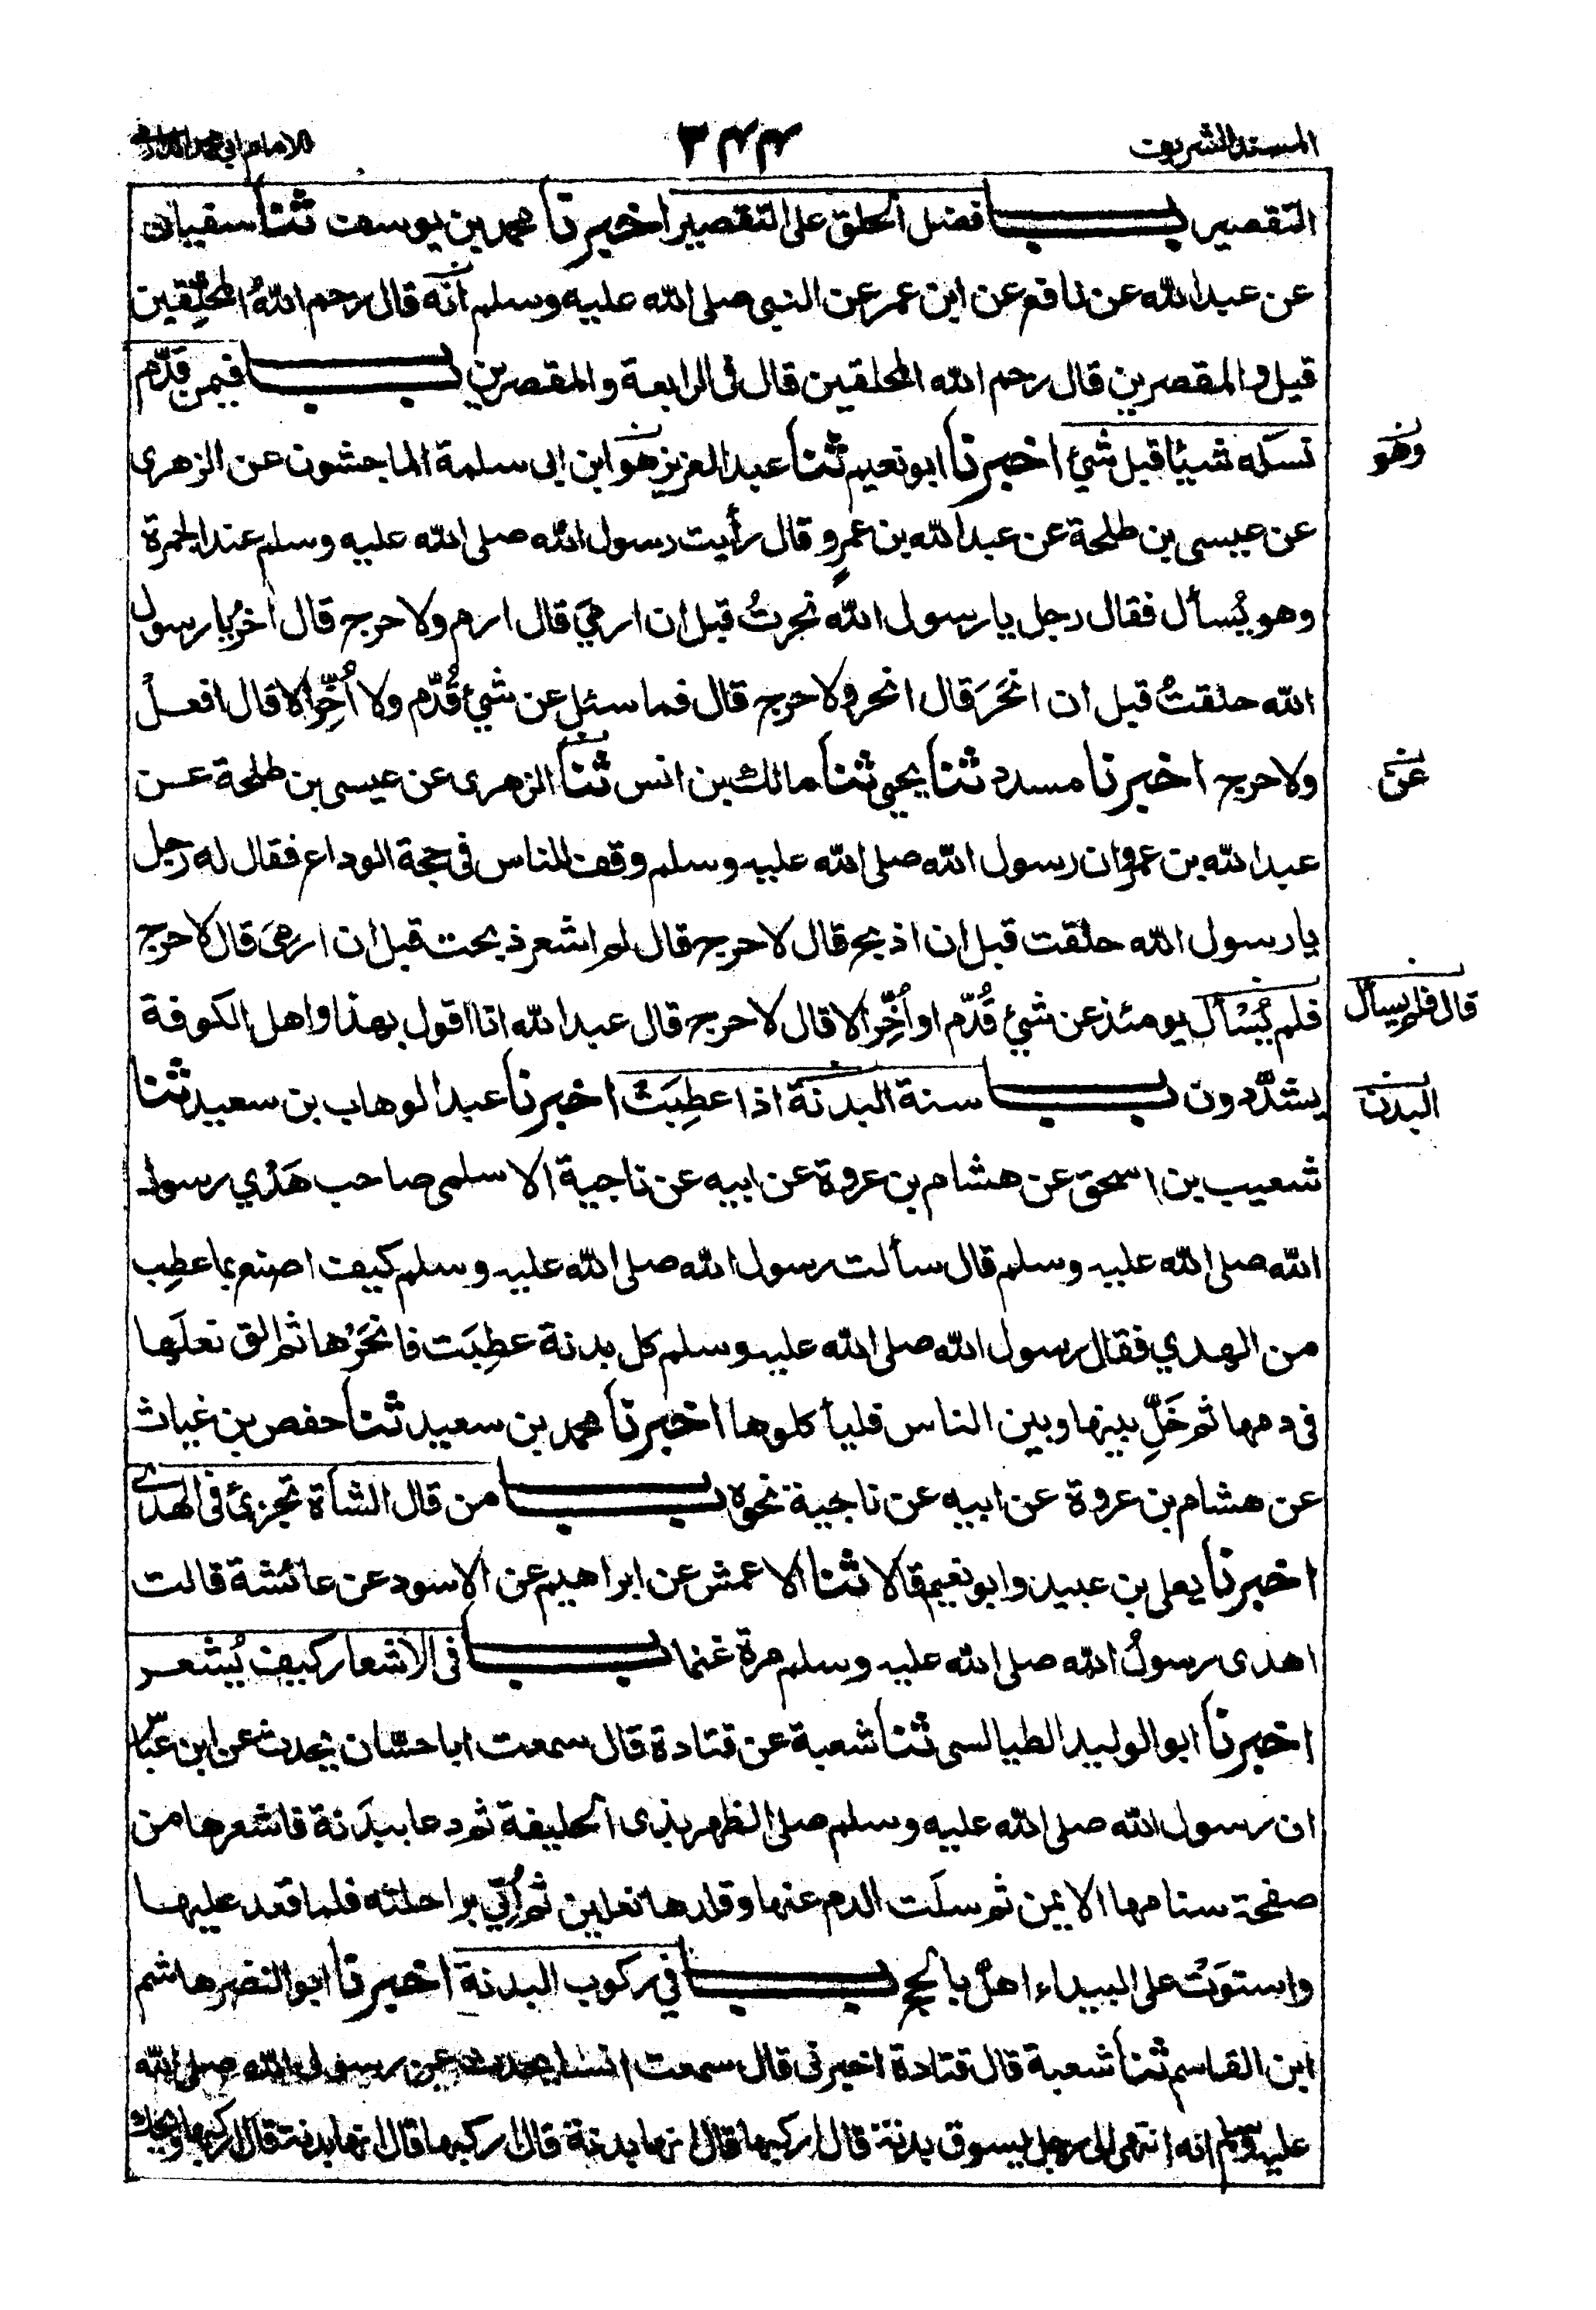 المسند الشريف
٢٤٤
للامام ابي محمد الدارمي
التقصير باب فضل الحلق على التقصير اخبرنا محمد بن يوسف ثنا سفيان
عن عبد الله عن نافع عن ابن عمر عن النبي صلى الله عليه وسلم انّه قال رحم اللهُ المحلِّقين
قيل والمقصرين قال رحم الله المحلقين قال فى الرابعة والمقصرين باب فيمن قَدّم
نسكه شيئا قبل شئ اخبرنا ابو نعيم ثنا عبد العزيز هو ابن ابى سلمة الماجشون عن الزهرى
وهو
عن عيسى بن طلحة عن عبد الله بن عمرٍو قال رأيت رسول الله صلى الله عليه وسلم عند الجمرة
وهو يُسأل فقال رجل يا رسول الله نحرتُ قبل ان ارميَ قال ارم ولا حرج قال اخرُ يا رسول
الله حلقتُ قبل ان انحَرَ قال انحر ولا حرج قال فما سئل عن شئ قُدّم ولا اُخِّر الا قال افعل
ولا حرج اخبرنا مسدد ثنا يحيى ثنا مالك بن انس ثنا الزهرى عن عيسى بن طلحة عن
عن
عبد الله بن عمرو ان رسول الله صلى الله عليه وسلم وقف للناس فى حجة الوداع فقال له رجل
يا رسول الله حلقت قبل ان اذبح قال لا حرج قال لم اشعر ذبحت قبل ان ارميَ قال لا حرج
فلم يُسْأل يومئذ عن شئ قُدّم او اُخِّر الا قال لا حرج قال عبد الله انا اقول بهذا واهل الكوفة
قال فلم يسأل
يشدّدون باب سنة البدنة اذا عطِبَتْ اخبرنا عبد الوهاب بن سعيد ثنا
البدن
شعيب بن اسحق عن هشام بن عروة عن ابيه عن ناجية الاسلمى صاحب هَدْي رسول
الله صلى الله عليه وسلم قال سألت رسول الله صلى الله عليه وسلم كيف اصنع بما عطِب
من الهدي فقال رسول الله صلى الله عليه وسلم كل بدنة عطِبَت فانحَرْها ثم الق نعلَها
فى دمها ثم خَلِّ بينها وبين الناس فليأكلوها اخبرنا محمد بن سعيد ثنا حفص بن غياث
عن هشام بن عروة عن ابيه عن ناجية نحوه باب من قال الشاة تجزئ فى الهدي
اخبرنا يعلى بن عبيد وابو نعيم قالا ثنا الاعمش عن ابراهيم عن الاسود عن عائشة قالت
اهدى رسولُ الله صلى الله عليه وسلم مرة غنما باب فى الاشعار كيف يُشعر
اخبرنا ابو الوليد الطيالسى ثنا شعبة عن قتادة قال سمعت ابا حسّان يحدث عن ابن عبّاس
ان رسول الله صلى الله عليه وسلم صلى الظهر بذى الحليفة ثم دعا ببدَنة فاشعرها من
صفحة سنامها الايمن ثم سلَت الدم عنها وقلدها نعلين ثم اُتِي براحلته فلما قعد عليها
واستوَتْ على البيداء اهلّ بالحج باب في ركوب البدنة اخبرنا ابو النضر هاشم
ابن القاسم ثنا شعبة قال قتادة اخبرنى قال سمعت انسا يحدث عن رسول الله صلى الله
عليه وسلم انه انتهى الى رجل يسوق بدنة قال اركبها قال انها بدنة قال اركبها قال انها بدنة قال اركبها ويحك